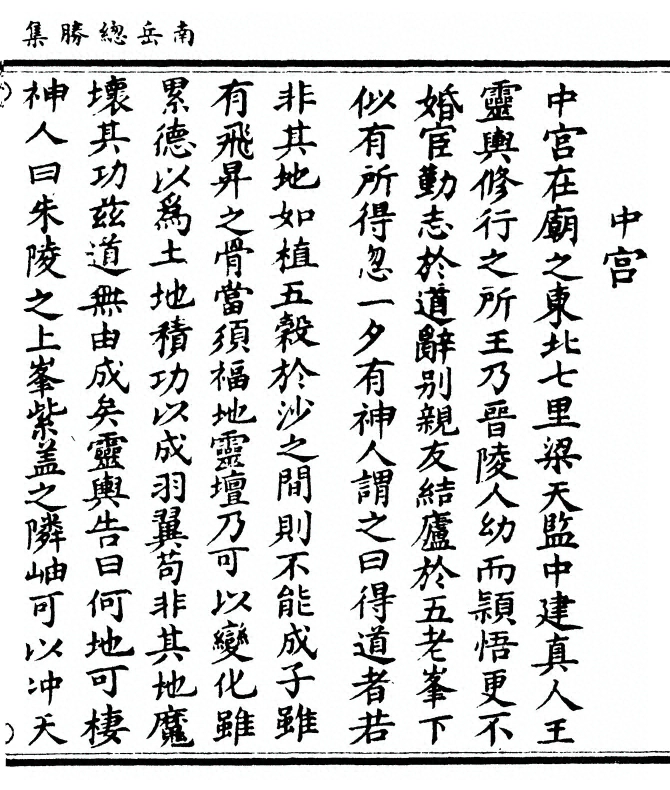 南岳總勝集
中宫
中宫在廟之東北七里梁天監中建真人王
靈輿修行之所王乃晉陵人幼而頴悟更不
婚宦勤志於道辭别親友結廬於五老峯下
似有所得忽一夕有神人謂之曰得道者若
非其地如植五穀於沙之間則不能成子雖
有飛昇之骨當須福地靈壇乃可以變化雖
累德以爲土地積功以成羽翼苟非其地魔
壞其功兹道無由成矣靈輿告曰何地可棲
神人曰朱陵之上峯紫盖之隣岫可以冲天